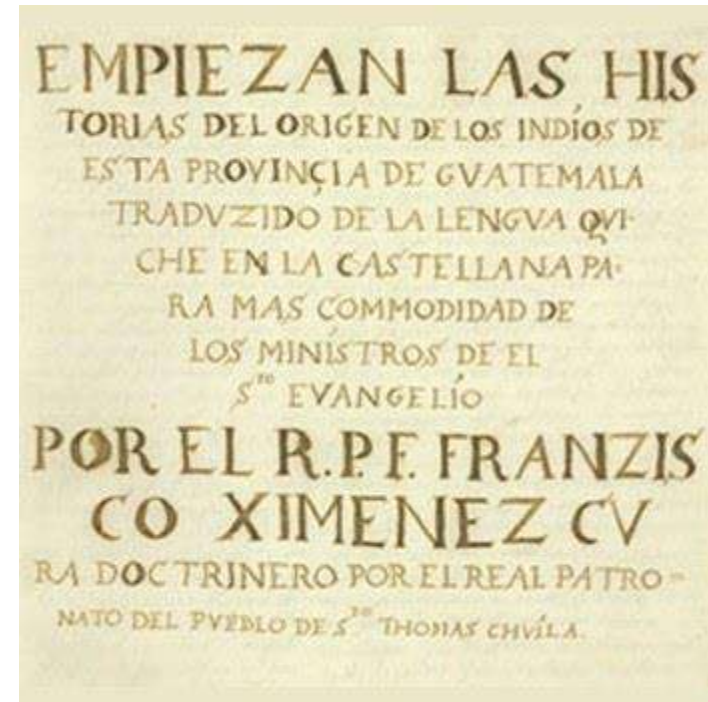 EMPIEZAN LAS HIS
TORIAS DEL ORIGEN DE LOS INDÍOS DE
ESTA PROVINÇIA DE GVATEMALA
TRADVZIDO DE LA LENGVA QVI·
CHE EN LA CASTELLANA PA·
RA MAS COMMODIDAD DE
LOS MINÍSTROS DE EL
S.TO EVANGELÍO
POR EL R.P.F. FRANZIS
CO XIMENEZ CV
RA DOCTRINERO POR EL REAL PATRO=
NATO DEL PVEBLO DE S.TO THOMAS CHVÍLA.